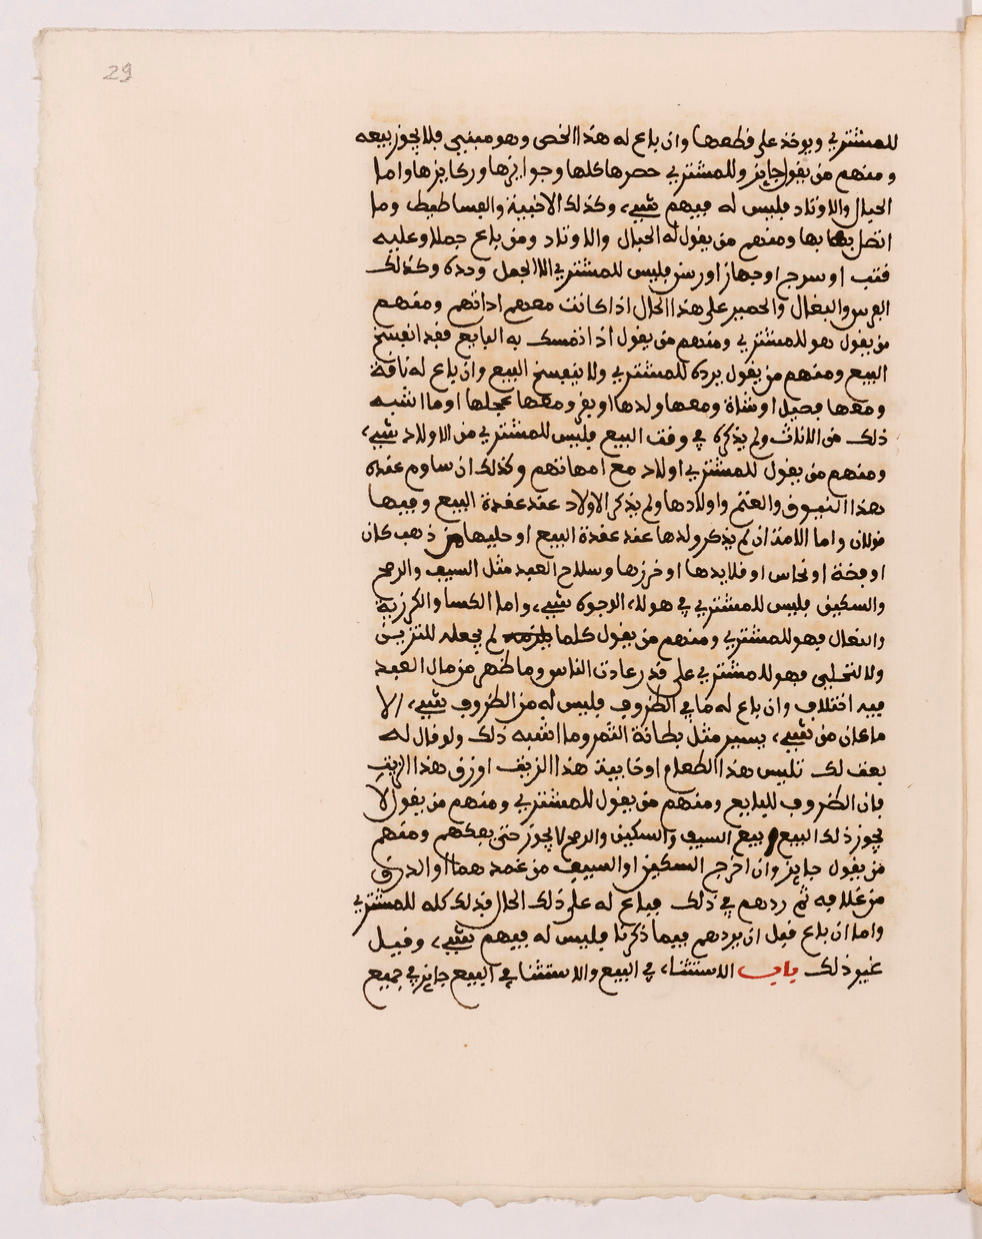 29
للمشتري ويوخذ على قطعها وان باع له هذا الخص وهو مبني فلا يجوز بيعه
ومنهم من يقول جايز وللمشتري حصرها كلها وجوايزها وركايزها واما
الحبال والاوتاد فليس له فيهم شيء، وكذلك الاخبية والفساطيط وما
اتصل بها ومنهم من يقول له الحبال والاوتاد ومن باع جملا وعليه
قتب او سرج او جهاز اورسن فليس للمشتري الا الجمل وحده وكذلك
الفرس والبغال والحمير على هذا الحال اذا كانت معهم اداتهم ومنهم
من يقول هو للمشتري ومنهم من يقول اذا تمسك به البايع فقد انفسخ
البيع ومنهم من يقول يرده للمشتري ولا ينفسخ البيع وان باع له ناقة
ومعها فصيل او شاة ومعها ولدها او بقر ومعها عجلها او ما اشبه
ذلك من الاناث ولم يذكره في وقت البيع فليس للمشتري من الاولاد شيء،
ومنهم من يقول للمشتري اولاد مع امهاتهم وكذلك ان ساوم عنده
هذا النوق والغنم واولادها ولم يذكر الاولاد عند عقدة البيع وفيها
قولان واما الامة ان لم يذكر ولدها عند عقدة البيع او حليها من ذهب كان
او فضة او نحاس او قلايدها او خرزها وسلاح العبد مثل السيف والرمح
والسكين فليس للمشتري في هولاء الوجوه شيء، واما الكسا والكرزية
والنعال فهو للمشتري ومنهم من يقول كلما لم يجعله للتزين
ولا لتحلى فهو للمشتري على قدر عادت الناس وما ظهر من مال العبد
فيه اختلاف وان باع له ما في الظروف فليس له من الظروف شيء، الا
ما كان من شيء، يسير مثل بطانة التمر وما اشبه ذلك ولو قال له
بعت لك تليس هذا الطعام او خابية هذا الزيت او زق هذا الزيت
فان الظروف للبايع ومنهم من يقول للمشتري ومنهم من يقول لا
يجوز ذلك البيع وبيع السيف والسكين والرمح لا يجوز حتى ومنهم
من يقول جايز وان اخرج السكين او السيف من غمدهما او الدرق
من غلافه ثم ردهم في ذلك فباع له على ذلك الحال فذلك كله للمشتري
واما ان باع قبل ان يردهم فيما ذكرنا فليس له فيهم شيء، وقيل
غير ذلك باب الاستثناء في البيع والاستثنا في البيع جايز في جميع